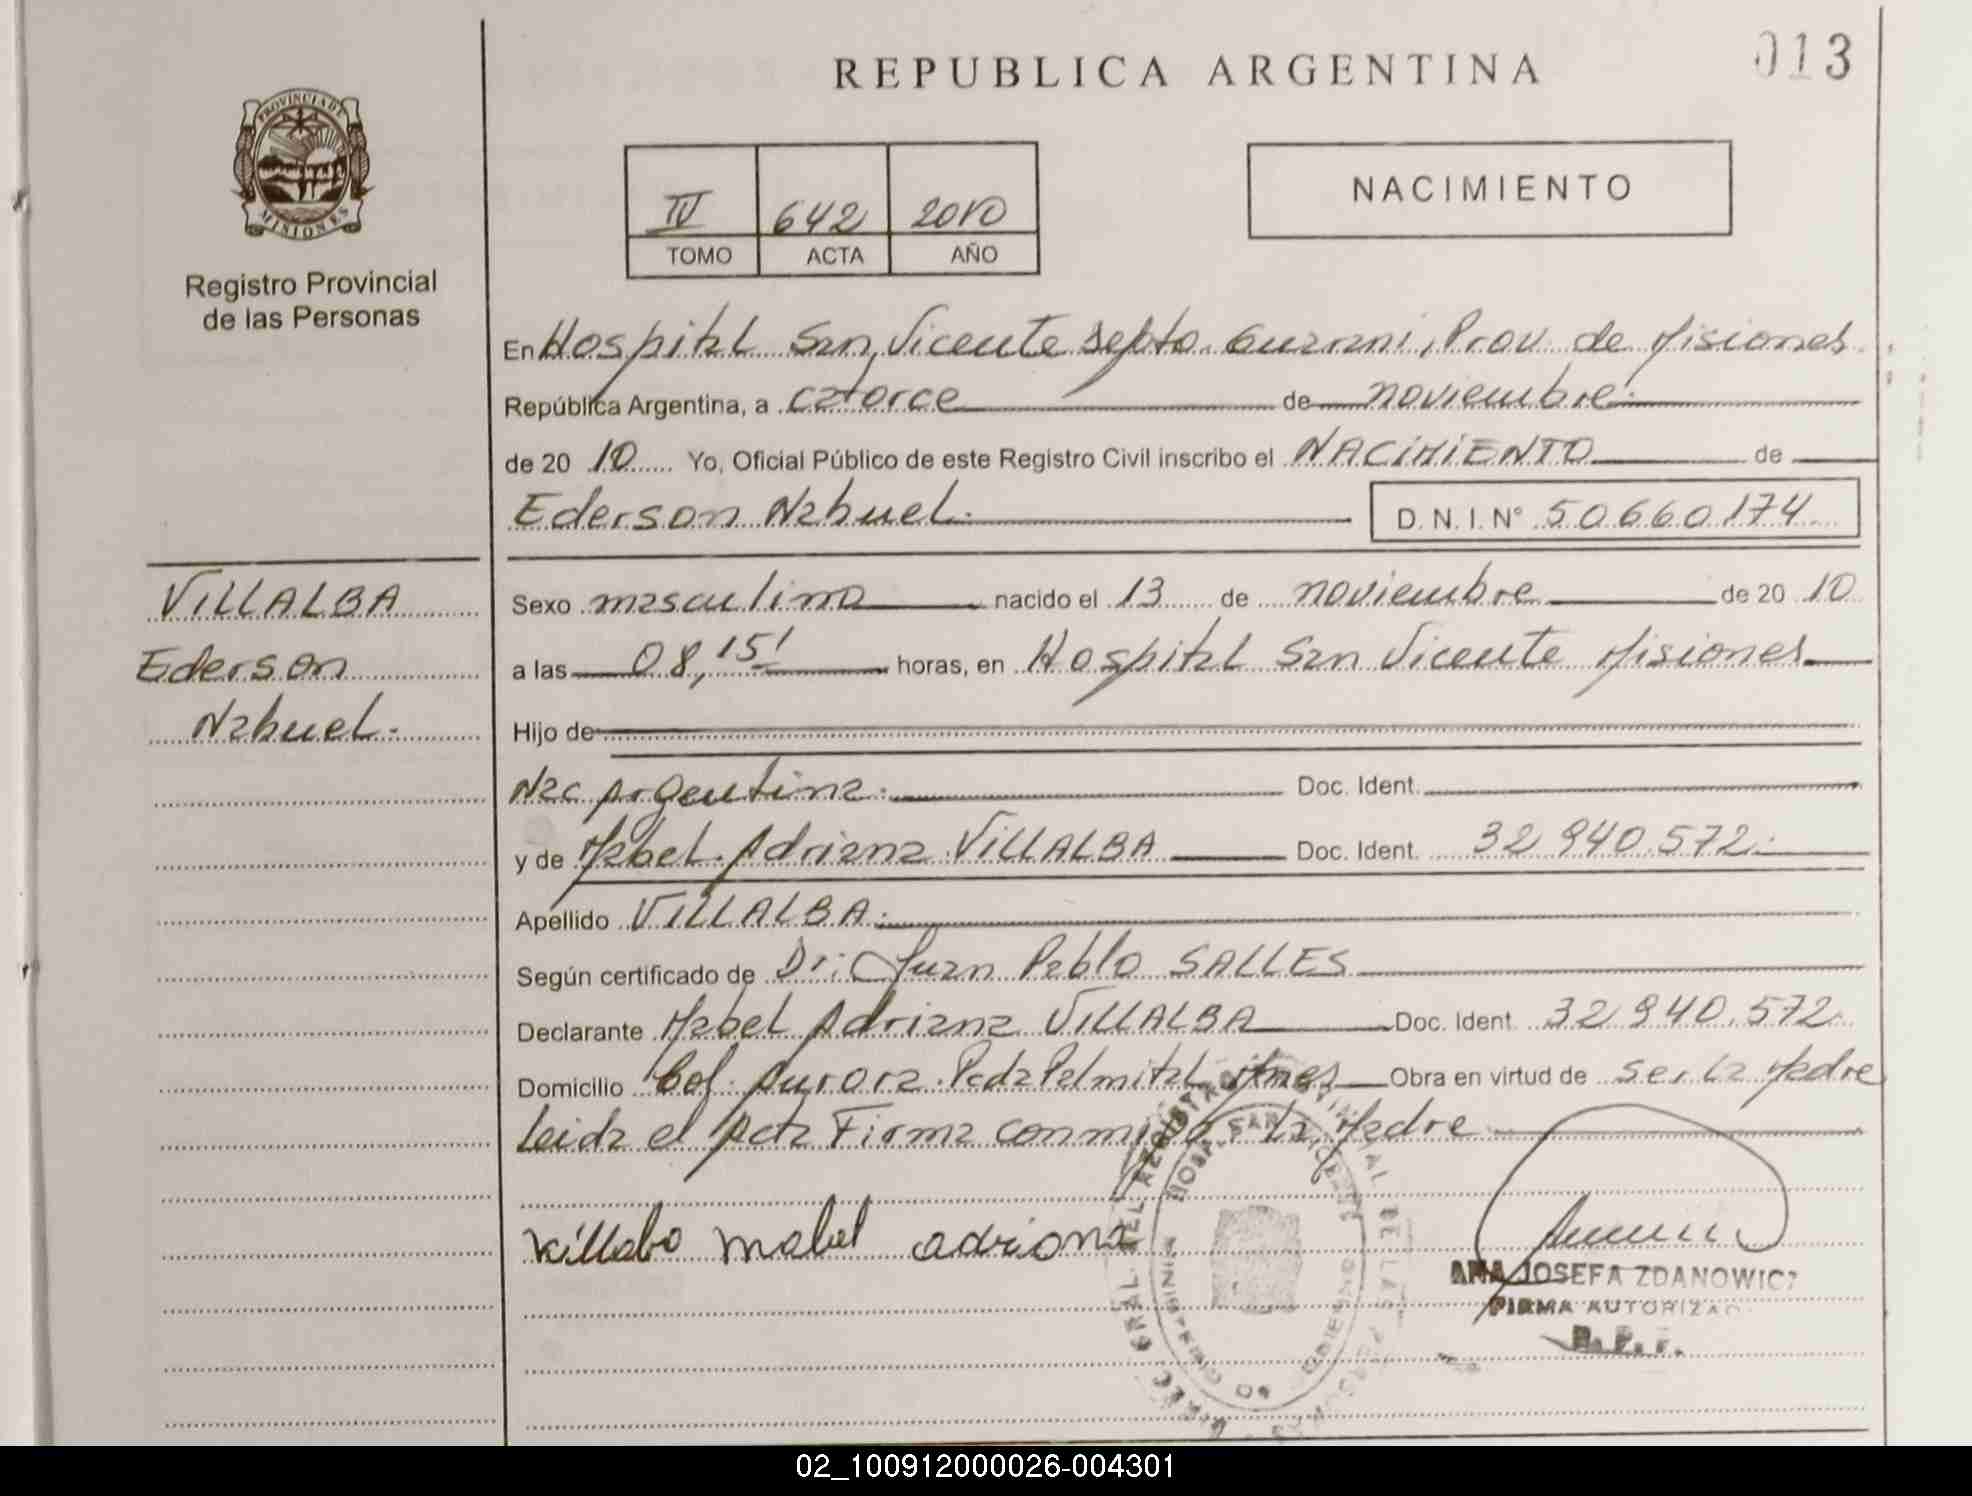 013
REPUBLICA ARGENTINA
PROVINCIA DE
MISIONES
Registro Provincial
de las Personas
IV 642 2010
TOMO ACTA AÑO
NACIMIENTO
En Hospital San Vicente Depto. Guarani, Prov. de Misiones
República Argentina, a catorce de noviembre
de 20 10 Yo, Oficial Público de este Registro Civil inscribo el NACIMIENTO de
Ederson Nahuel. D. N. I. N° 50660174
VILLALBA
Ederson
Nahuel.
Sexo masculino nacido el 13 de noviembre de 20 10
a las 08,15' horas, en Hospital San Vicente Misiones
Hijo de
Nac Argentina. Doc. Ident.
y de Mabel Adriana VILLALBA Doc. Ident. 32 940 572.
Apellido VILLALBA.
Según certificado de Dr: Juan Pablo SALLES
Declarante Mabel Adriana VILLALBA Doc. Ident. 32 940.572.
Domicilio Col. Aurora. Pda Palmital Mnes Obra en virtud de ser la Madre
Leida el Acta Firma conmigo la Madre
Villaba mabel adriana
ANA JOSEFA ZDANOWICZ
FIRMA AUTORIZAD
02_100912000026-004301